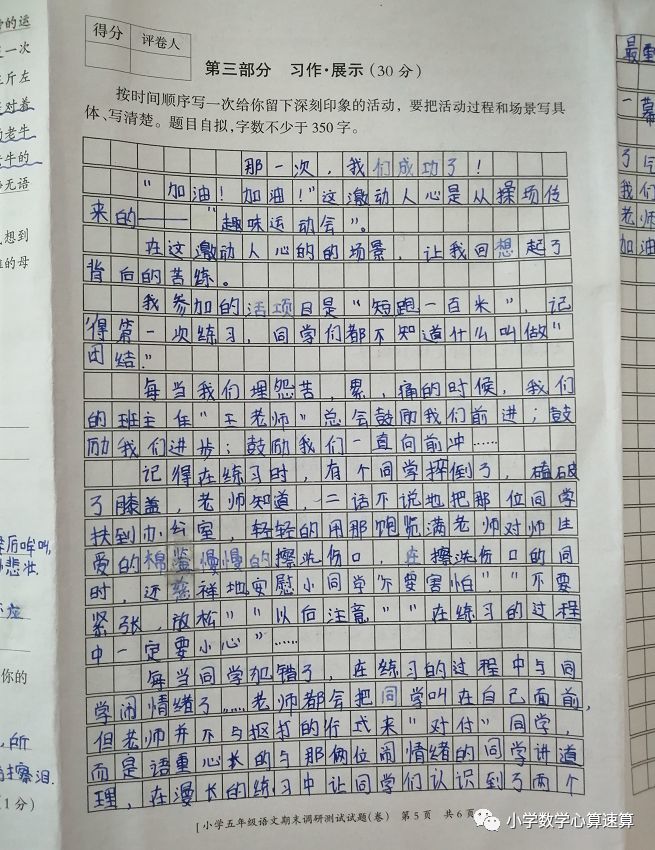 得分 评卷人
第三部分 习作·展示(30分)
按时间顺序写一次给你留下深刻印象的活动,要把活动过程和场景写具
体、写清楚。题目自拟,字数不少于350字。
那一次,我们成功了!
“加油!加油!”这激动人心是从操场传
来的——“趣味运动会”。
在这激动人心的的场景,让我回想起了
背后的苦练。
我参加的活项目是“短跑一百米”,记
得第一次练习,同学们都不知道什么叫做“
团结”
每当我们埋怨苦,累,痛的时候,我们
的班主任“王老师”总会鼓励我们前进;鼓
励我们进步;鼓励我们一直向前冲……
记得在练习时,有个同学摔倒了,磕破
了膝盖,老师知道,二话不说地把那位同学
扶到办公室,轻轻的用那饱览满老师对师生
爱的棉签慢慢的擦洗伤口,在擦洗伤口的同
时,还慈祥地安慰小同学“不要害怕”“不要
紧张,放松”“以后注意”“在练习的过程
中一定要小心”……
每当同学犯错了,在练习的过程中与同
学闹情绪了……老师都会把同学叫在自己面前,
但老师并不与抠打的行式来“对付”同学,
而是语重心长的与那俩位闹情绪的同学讲道
理,在漫长的练习中让同学们认识到了两个
[小学五年级语文期末调研测试试题(卷) 第5页 共6页]
小学数学心算速算
的运
一次
斤左
对着
老牛
牛的
无语
想到
的母
后哞叫,
悲壮.
你的
,所
擦泪.
1分)
最
一幕
了
我们
老师
加油